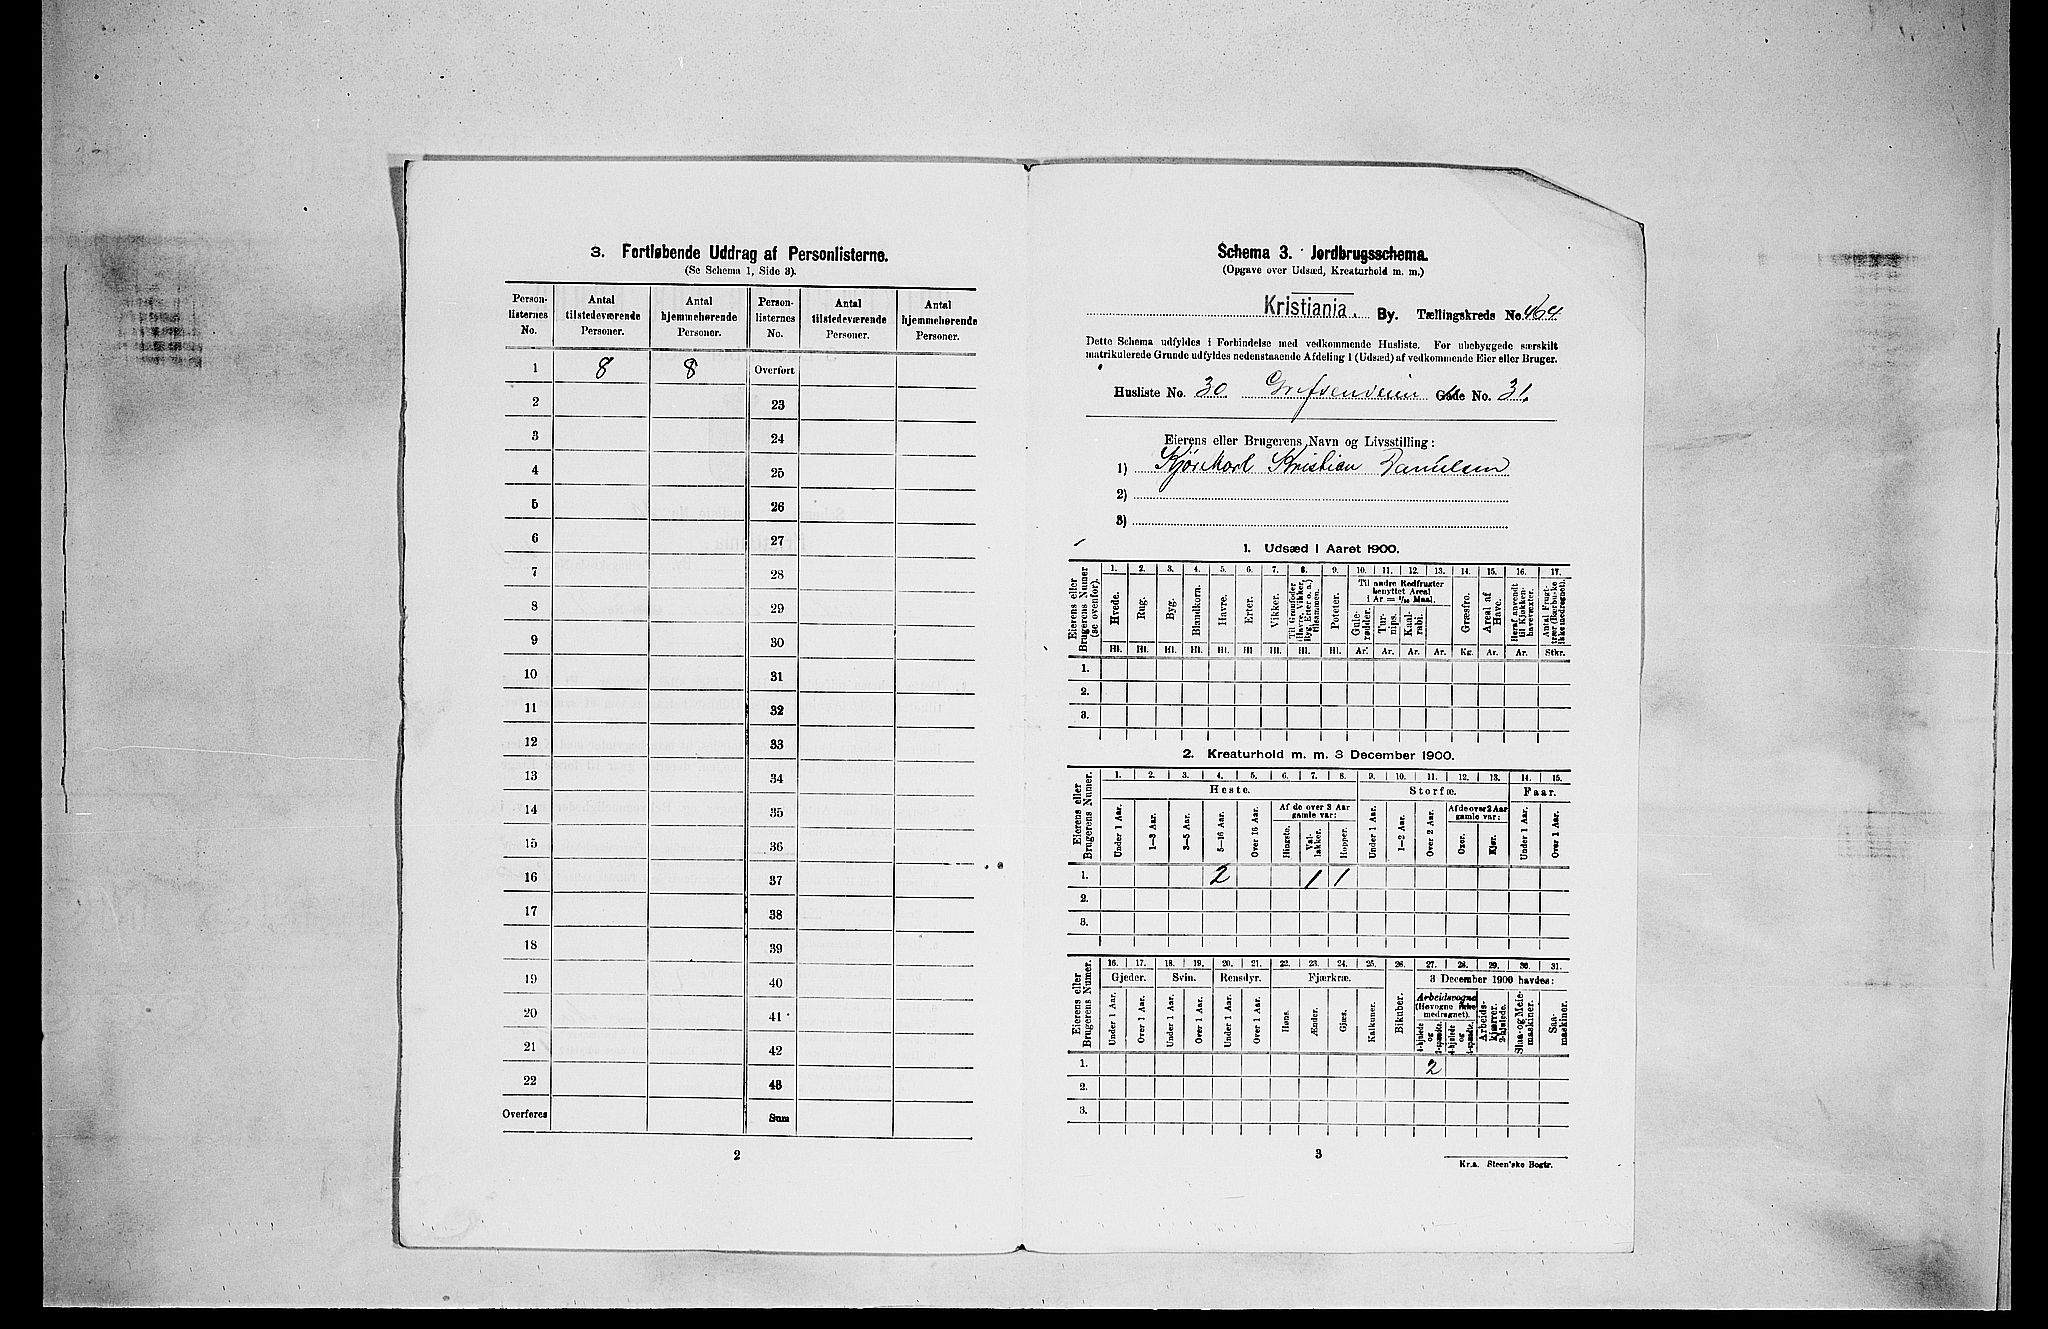 3. Fortløbende Uddrag af Personlisterne.
(Se Schema 1, Side 3).
Person-listernes No. Antal tilstedeværende Personer. Antal hjemmehørende Personer. Person-listernes No. Antal tilstedeværende Personer. Antal hjemmehørende Personer.
1 8 8 Overført
2 23
3 24
4 25
5 26
6 27
7 28
8 29
9 30
10 31
11 32
12 33
13 34
14 35
15 36
16 37
17 38
18 39
19 40
20 41
21 42
22 43
Overføres Sum
2
Schema 3. Jordbrugsschema.
(Opgave over Udsæd, Kreaturhold m. m.)
Kristiania. By. Tællingskreds No. 464
Dette Schema udfyldes i Forbindelse med vedkommende Husliste. For ubebyggede særskilt
matrikulerede Grunde udfyldes nedenstaaende Afdeling 1 (Udsæd) af vedkommende Eier eller Bruger.
Husliste No. 30 Grefsenveien Gade No. 31.
Eierens eller Brugerens Navn og Livsstilling:
1) Kristian Danielsen
2)
3)
1. Udsæd i Aaret 1900.
Eierens eller Brugerens Numer (se ovenfor).
1. 2. 3. 4. 5. 6. 7. 8. 9. 10. 11. 12. 13. 14. 15. 16. 17.
Hvede. Rug. Byg. Blandkorn. Havre. Erter. Vikker. Til Grønfoder (Havre, Vikker, Byg, Erter o. a.) tilsammen. Poteter. Til andre Rodfrugter benyttet Areal i Ar = 1/10 Maal. Gule-rødder. Tur-nips. Kaal-rabi. Græsfrø. Areal af Have. Heraf anvendt til Kjøkken-havevæxter. Antal Frugt-trær (Bærbuske ikke medregnet).
Hl. Hl. Hl. Hl. Hl. Hl. Hl. Hl. Hl. Ar. Ar. Ar. Ar. Kg. Ar. Ar. Stkr.
1.
2.
3.
2. Kreaturhold m. m. 3 December 1900.
Eierens eller Brugerens Numer.
1. 2. 3. 4. 5. 6. 7. 8. 9. 10. 11. 12. 13. 14. 15.
Heste. Storfæ. Faar.
Af de over 3 Aar gamle var: Af de over 2 Aar gamle var:
Under 1 Aar. 1—3 Aar. 3—5 Aar. 5—16 Aar. Over 16 Aar. Hingste. Val-lakker. Hopper. Under 1 Aar. 1—2 Aar. Over 2 Aar. Oxer. Kjør. Under 1 Aar. Over 1 Aar.
1. 2 1 1
2.
3.
Eierens eller Brugerens Numer.
16. 17. 18. 19. 20. 21. 22. 23. 24. 25. 26. 27. 28. 29. 30. 31.
Gjeder. Svin. Rensdyr. Fjærkræ. 3 December 1900 havdes:
Arbeidsvogne (Høvogne ikke medregnet).
Under 1 Aar. Over 1 Aar. Under 1 Aar. Over 1 Aar. Under 1 Aar. Over 1 Aar. Høns. Ænder. Gjæs. Kalkuner. Bikuber. 4-hjulede og 2-spændte. 4-hjulede og 1-spændte. Arbeids-kjærrer, 2-hjulede. Slaa- og Meie-maskiner. Saa-maskiner.
1. 2
2.
3.
3
Kr.a. Steen'ske Bogtr.